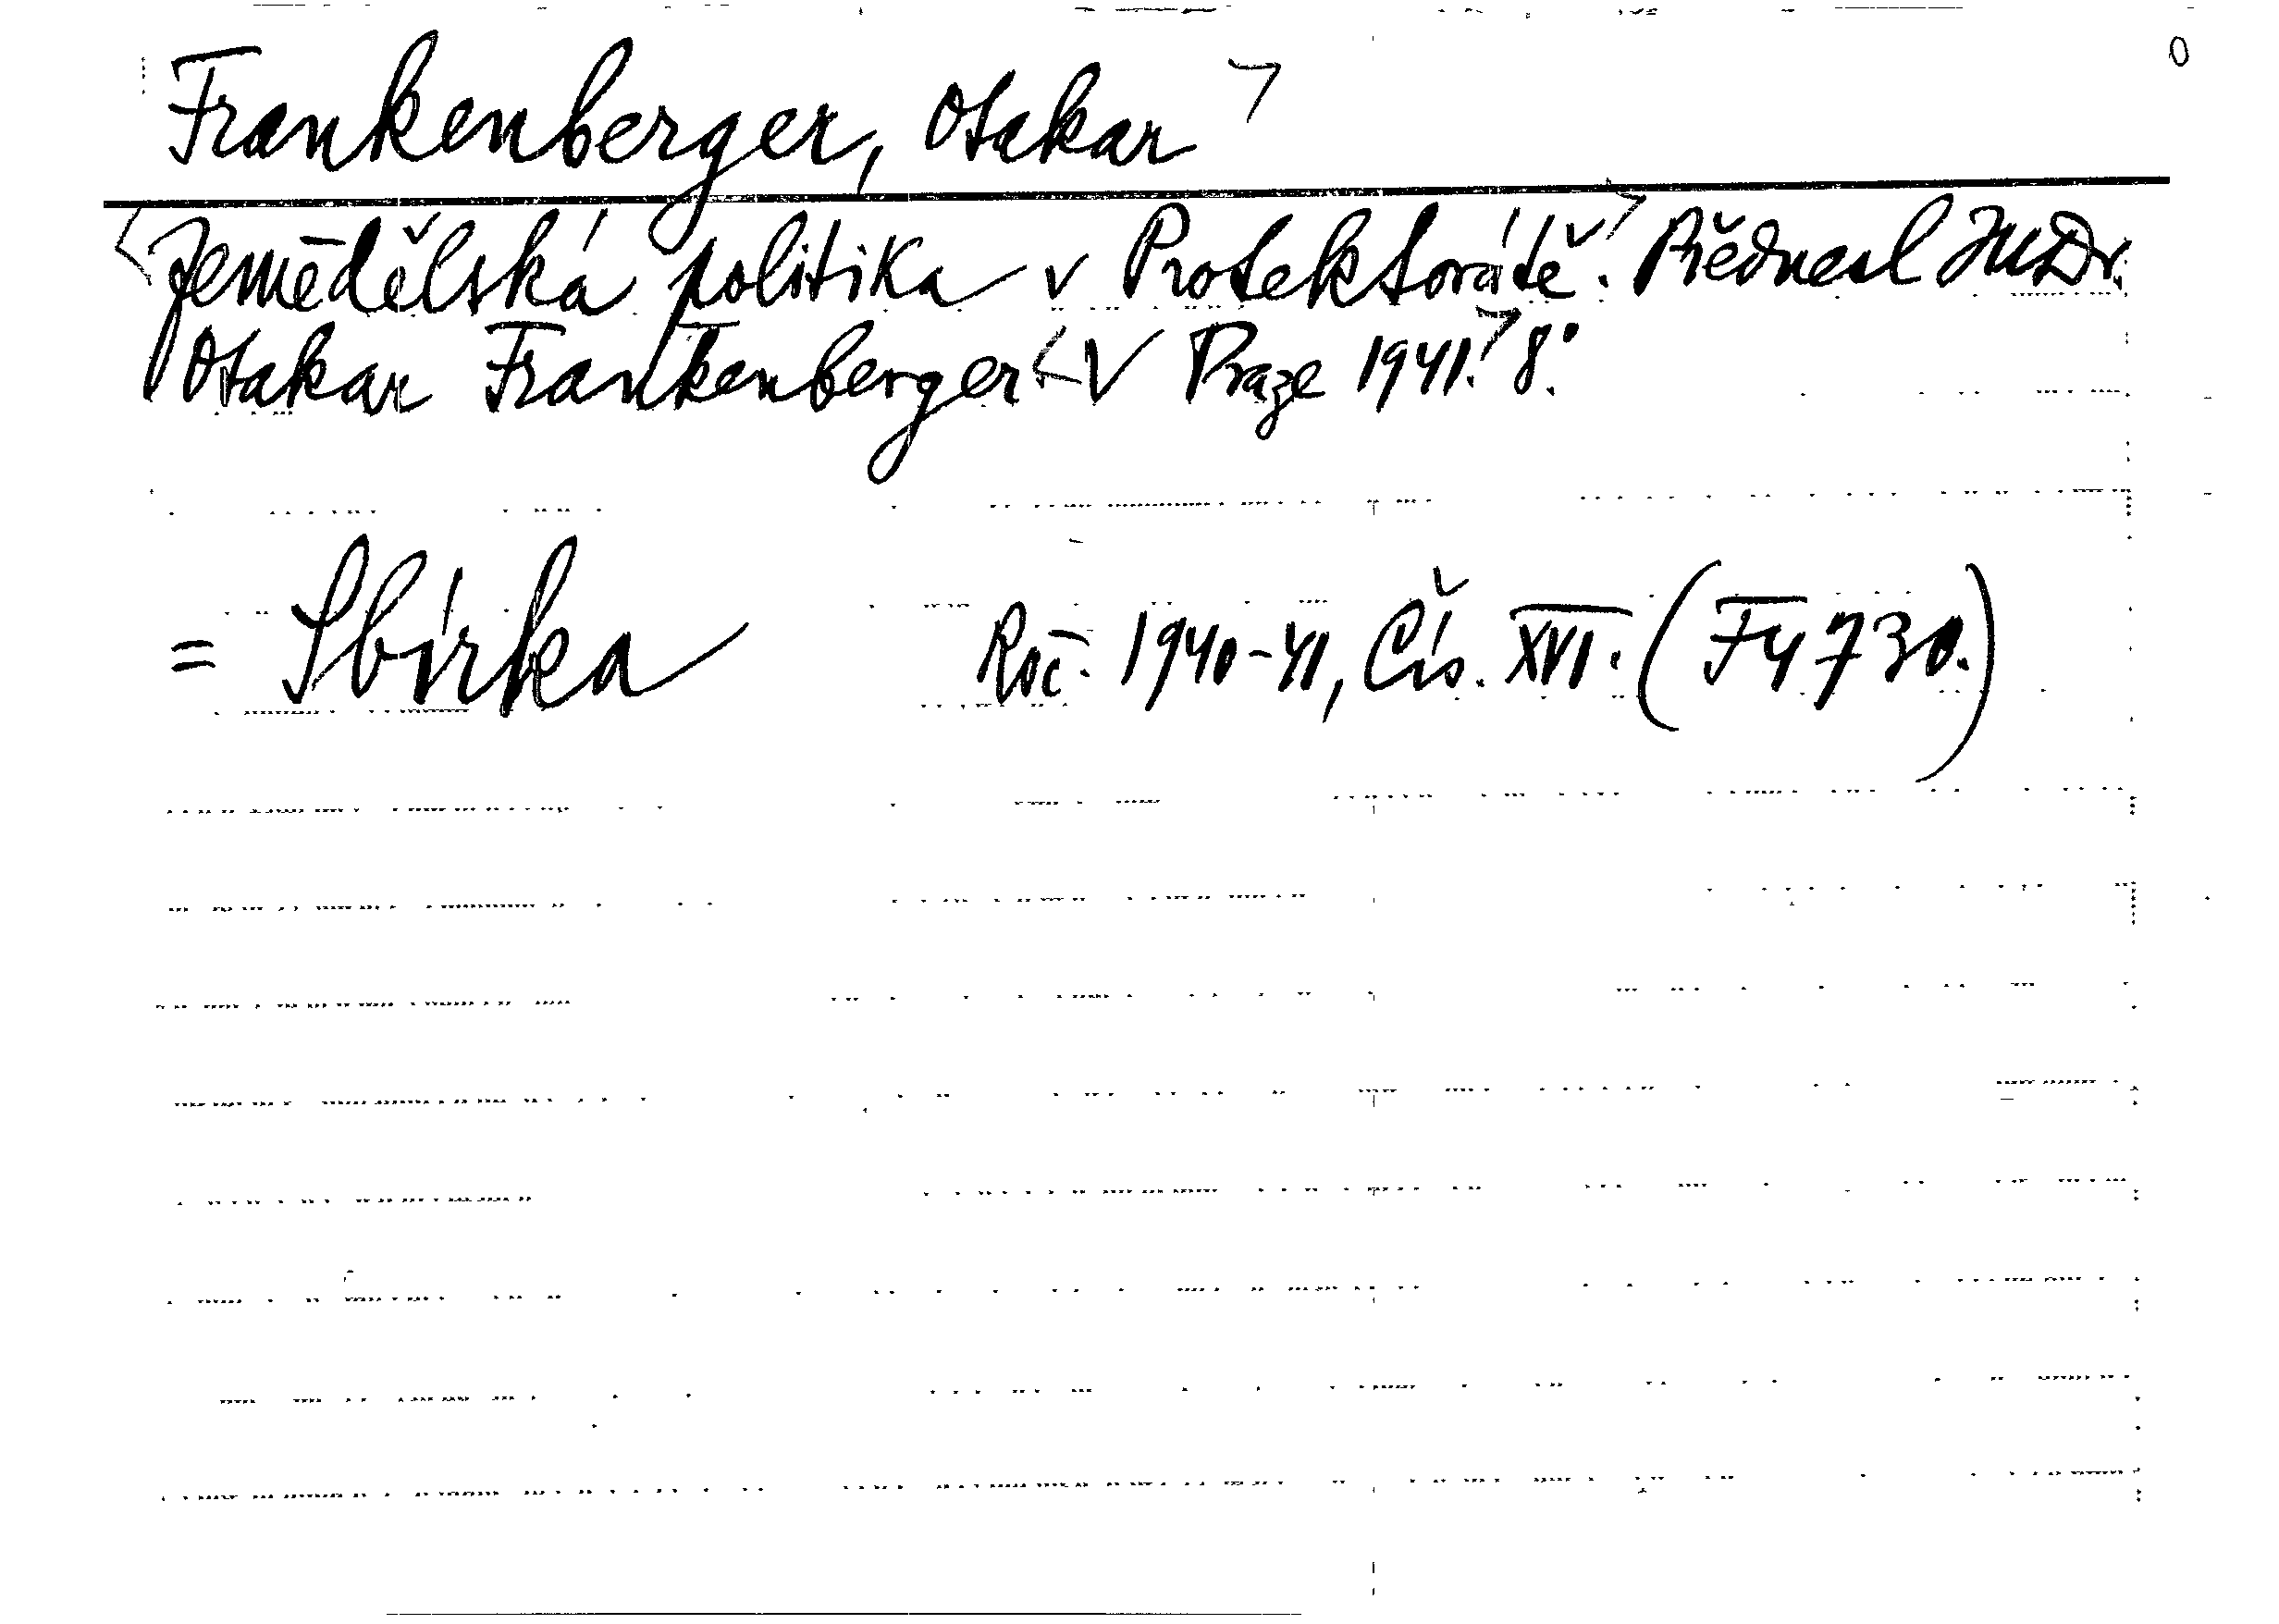 Frankenberger, Otakar
Zemědělská politika v Protektorátě. Přednesl JUDr.
Otakar Frankenberger V Praze 1941. 8°.
= Sbírka Roč. 1940-41, Čís. XVI. (F4730.)